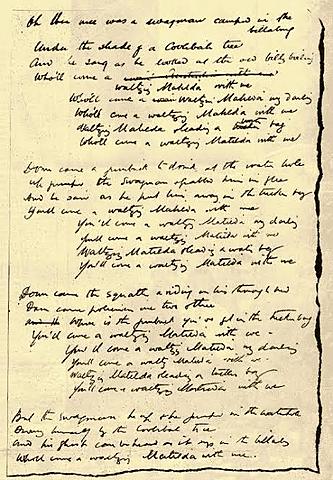 Oh there once was a swagman camped in the
billabong
Under the shade of a Coolibah tree
And he sang as he looked at the old billy boiling
Who'll come a
waltzing Matilda with me
Who'll come a waltzing Matilda my darling
Who'll come a waltzing Matilda with me
Waltzing Matilda leading a bag
Who'll come a waltzing Matilda with me
Down came a jumbuck to drink at the water hole
Up jumped the Swagman grabbed him in glee
And he said as he put him away in the tucker bag
You'll come a waltzing Matilda with me
You'll come a waltzing Matilda my darling
You'll come a waltzing Matilda with me
Waltzing Matilda leading a water bag
You'll come a waltzing Matilda with me
Down came the Squatter a riding on his thoroughbred
Down came policemen one two three
Where is the jumbuck you've got in the tucker bag
You'll come a waltzing Matilda with me
You'll come a waltzing Matilda my darling
You'll come a waltzing Matilda with me
Waltzing Matilda leading a tucker bag
You'll come a waltzing Matilda with me
But the Swagman he up and he jumped in the waterhole
Drowning himself by the Coolibah tree
And his ghost can be heard as it sings in the billabong
Who'll come a waltzing Matilda with me